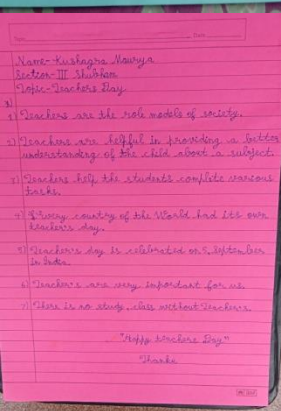 Name-Kushagra Mourya
Section-III Shubham
Topic-Teachers Day
1) Teachers are the role models of society.
2) Teachers are helpful in providing a better
understanding of the child about a subject.
3) Teachers help the students complete various
tasks.
4) Every country of the World had its own
teacher's day.
5) Teacher's day is celebrated on 5 September
in India.
6) Teacher's are very important for us.
7) There is no study, class without Teacher's.
"Happy teachers Day"
Thanks